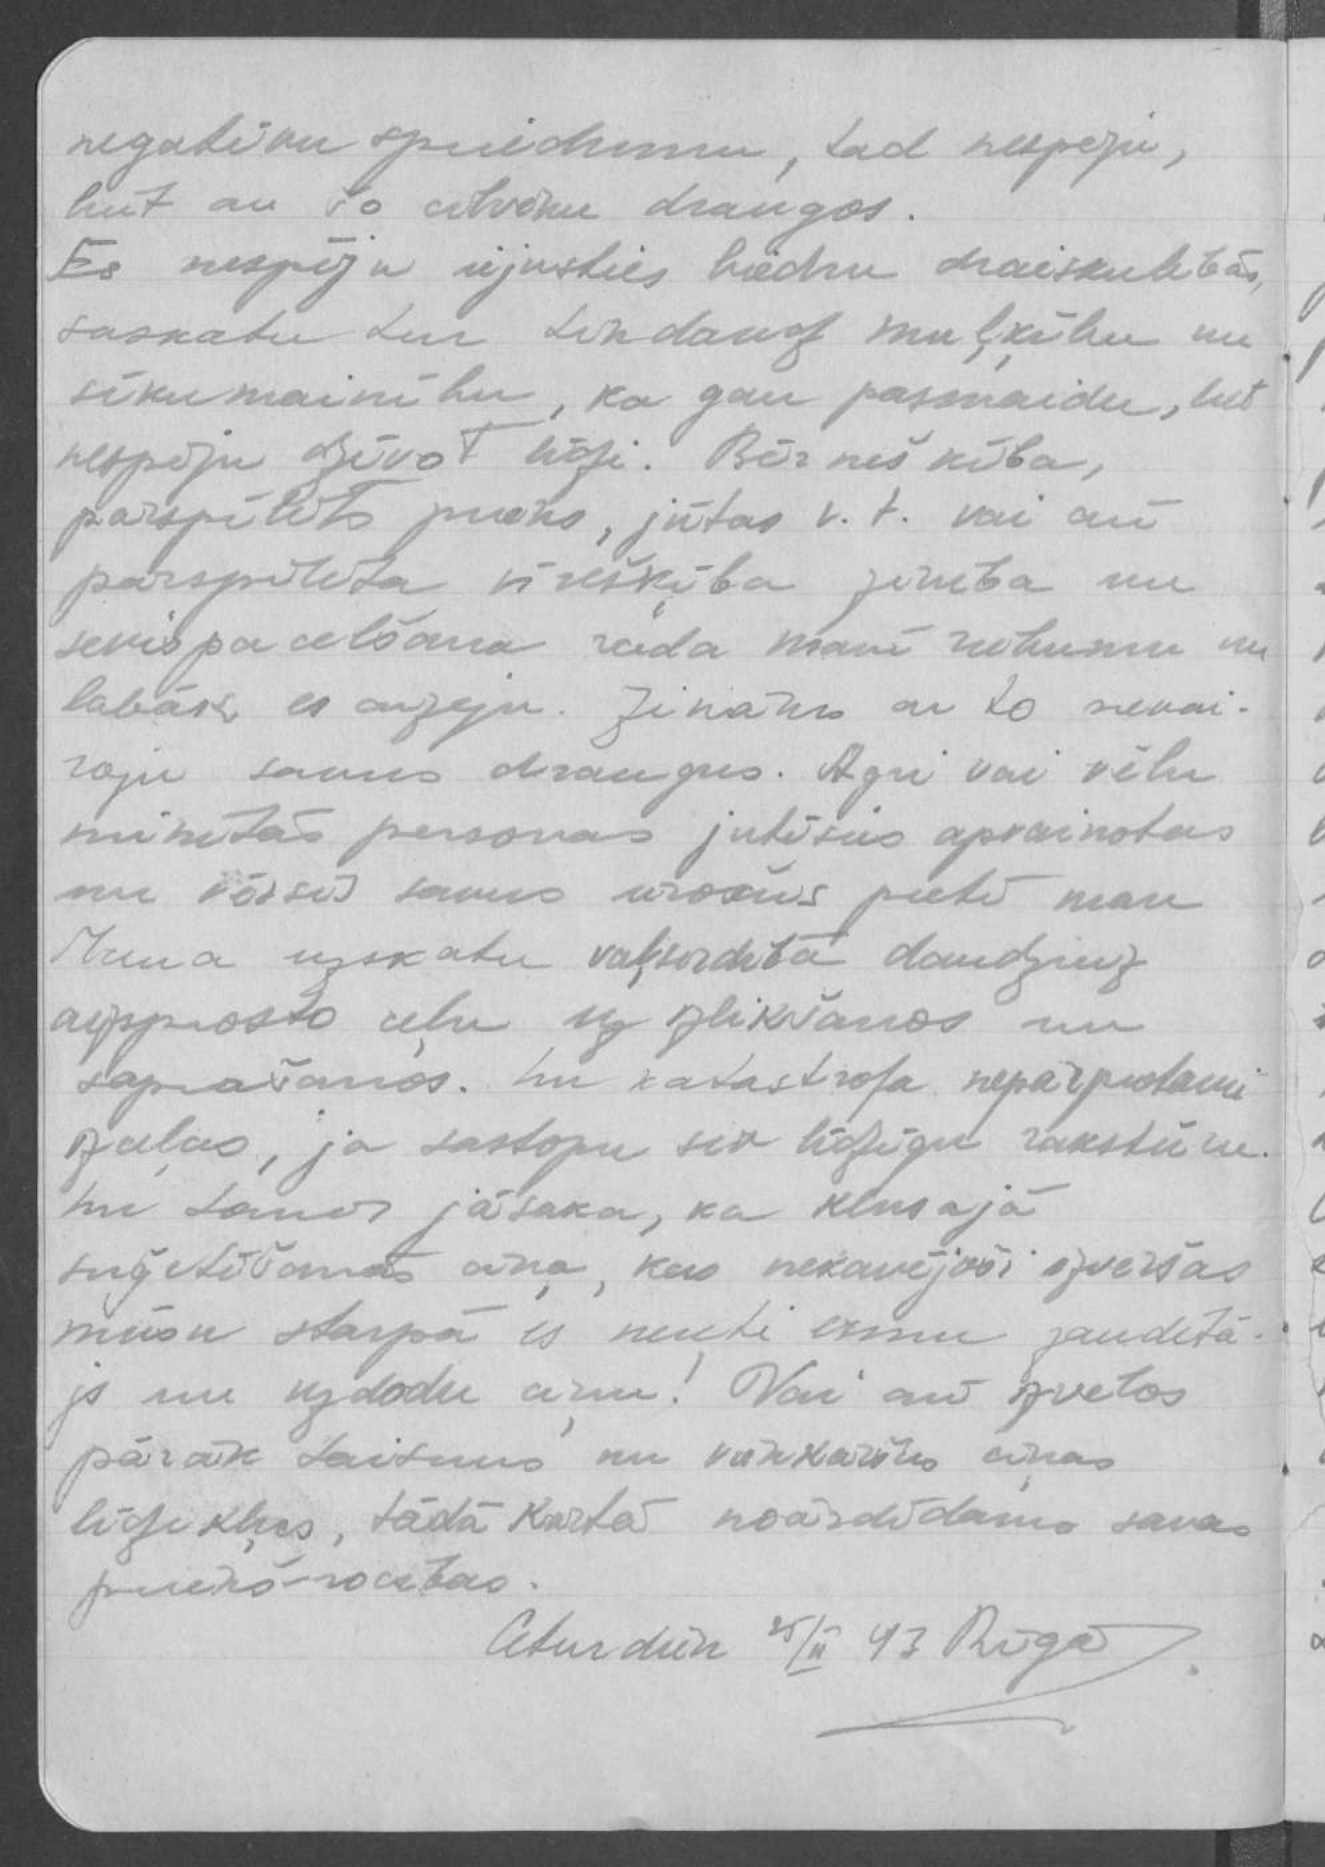 negatīvu spriedumu, tad nespēju,
būt ar šo cilvēku draugos.
Es nespēju iejusties biedru draiskulībās,
saskatu tur tik daudz muļķību un
sīkumainību, ka gan pasmaidu, bet
nespēju dzīvot līdzi. Bērnišķība,
pārspīlēts prieks, jūtas u. t. vai arī
pārspīlēta vīrišķība zinība un
sevis pacelšana rada manī rūgtumu un
labāk es aizeju. Zināms ar to nevai-
roju savus draugus. Agri vai vēlu
minētās personas jutīsies apvainotas
un vērsīs savus ieročus pret mani
Mana uzskatu vaļsirdība daudzreiz
aizsprosto ceļu uz izlīkšanos un
saprašanos. Un katastrofa nepārprotami
izceļas, ja sastopu sev līdzīgu raksturu.
Un tomēr jāsaka, ka klusajā
sirģēšanās cīņa, kas nekavējoši izvēršas
mūsu starpā es nereti esmu zaudētā-
js un uzdodu cīņu! Vai arī izvēlos
pārāk taisnus un vienkāršus cīņas
līdzekļus, tādā kārtā noārdīdams savas
priekš-rocības.
Ceturdien 25/II 43 Rīgā